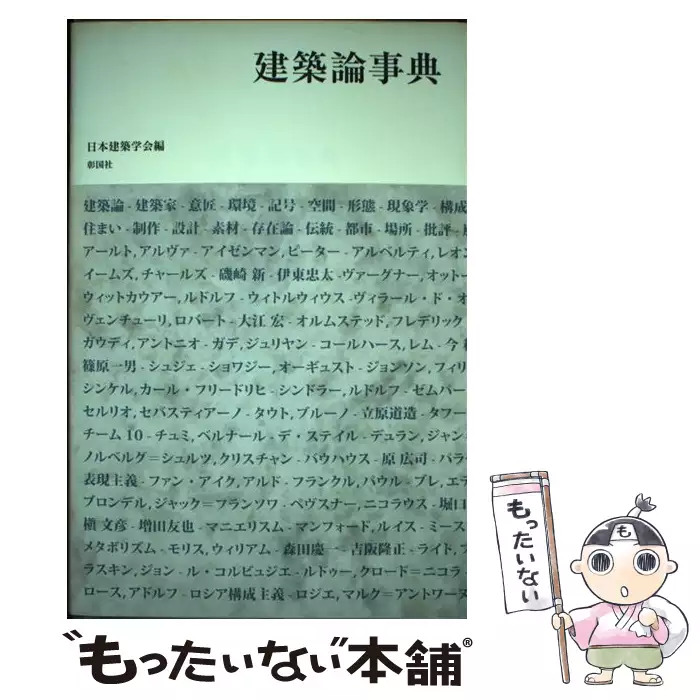 建築論事典
日本建築学会編
彰国社
建築論 - 建築家 - 意匠 - 環境 - 記号 - 空間 - 形態 - 現象学 - 構成
住まい - 制作 - 設計 - 素材 - 存在論 - 伝統 - 都市 - 場所 - 批評 -
アールト, アルヴァ - アイゼンマン, ピーター - アルベルティ, レオン
イームズ, チャールズ - 磯崎 新 - 伊東忠太 - ヴァーグナー, オットー
ウィットカウアー, ルドルフ - ウィトルウィウス - ヴィラール・ド・オ
ヴェンチューリ, ロバート - 大江 宏 - オルムステッド, フレデリック
ガウディ, アントニオ - ガデ, ジュリヤン - コールハース, レム - 今
篠原一男 - シュジェ - ショワジー, オーギュスト - ジョンソン, フィリ
シンケル, カール・フリードリヒ - シンドラー, ルドルフ - ゼムパー
セルリオ, セバスティアーノ - タウト, ブルーノ - 立原道造 - タフー
チーム 10 - チュミ, ベルナール - デ・ステイル - デュラン, ジャン
ノルベルグ=シュルツ, クリスチャン - バウハウス - 原 広司 - パラ
表現主義 - ファン・アイク, アルド - フランクル, パウル - ブレ, エテ
ブロンデル, ジャック=フランソワ - ペヴスナー, ニコラウス - 堀口
槇 文彦 - 増田友也 - マニエリスム - マンフォード, ルイス - ミース
メタボリズム - モリス, ウィリアム - 森田慶一 - 吉阪隆正 - ライト,
ラスキン, ジョン - ル・コルビュジエ - ルドゥー, クロード=ニコラ
ロース, アドルフ - ロシア構成主義 - ロジエ, マルク=アントワーヌ
もったいない
も
"もったいない"本舗®